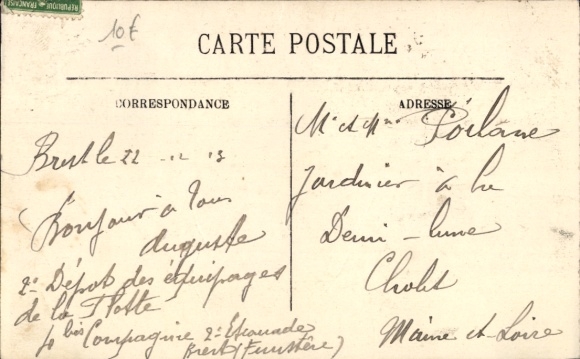 RÉPUBLIQUE FRANÇAISE
10 €
CARTE POSTALE
CORRESPONDANCE
Brest le 22 - 12 - 13
Bonjour à Tous
Auguste
2e Dépôt des équipages
de la Flotte
4 bis Compagnie 2e Escouade
Brest (Finistère)
ADRESSE
Mr et Mme Poilane
Jardinier à la
Demi-lune
Cholet
Maine et Loire